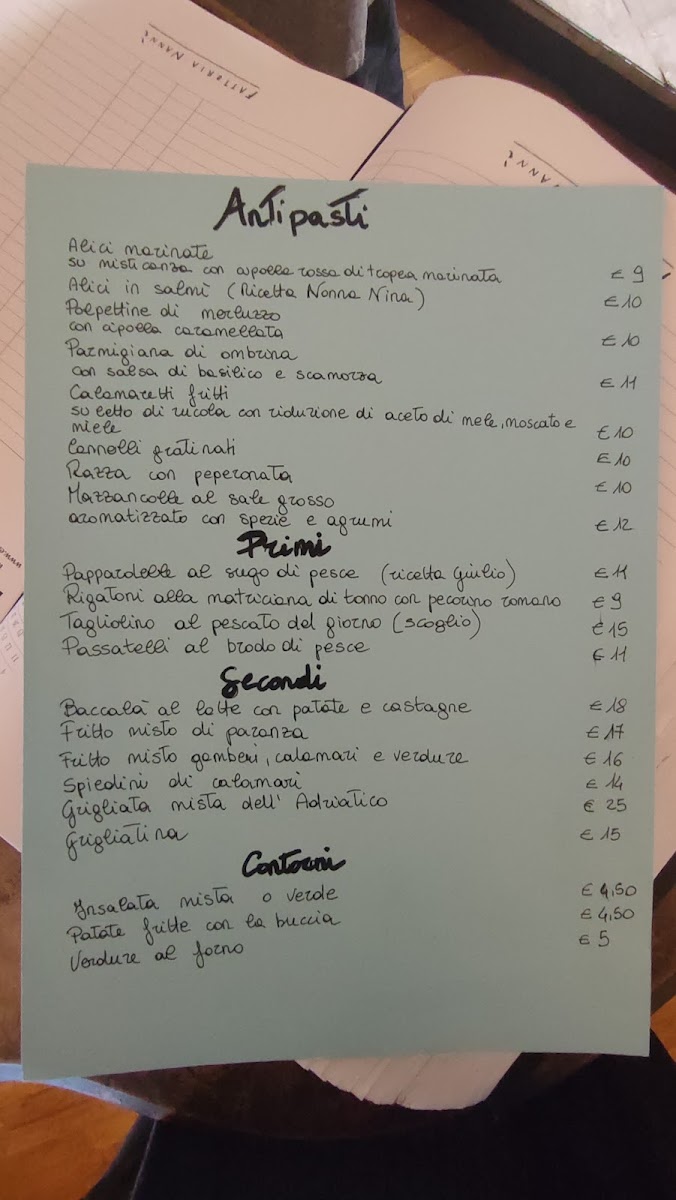 FATTERIA NANNÌ
ANNÌ
Antipasti
Alici marinate
su misticanza con cipolla rossa di tropea marinata € 9
Alici in salmì (Ricetta Nonna Nina) € 10
Polpettine di merluzzo
con cipolla caramellata € 10
Parmigiana di ombrina
con salsa di basilico e scamorza € 11
Calamaretti fritti
su letto di rucola con riduzione di aceto di mele, moscato e
miele € 10
Cannolli gratinati € 10
Razza con peperonata € 10
Mazzancolle al sale grosso
aromatizzato con spezie e agrumi € 12
Primi
Pappardelle al sugo di pesce (ricetta Giulio) € 11
Rigatoni alla matriciana di tonno con pecorino romano € 9
Tagliolino al pescato del giorno (scoglio) € 15
Passatelli al brodo di pesce € 11
Secondi
Baccalà al latte con patate e castagne € 18
Fritto misto di paranza € 17
Fritto misto gamberi, calamari e verdure € 16
Spiedini di calamari € 14
Grigliata mista dell' Adriatico € 25
Grigliatina € 15
Contorni
Insalata mista o verde € 4,50
Patate fritte con la buccia € 4,50
Verdure al forno € 5